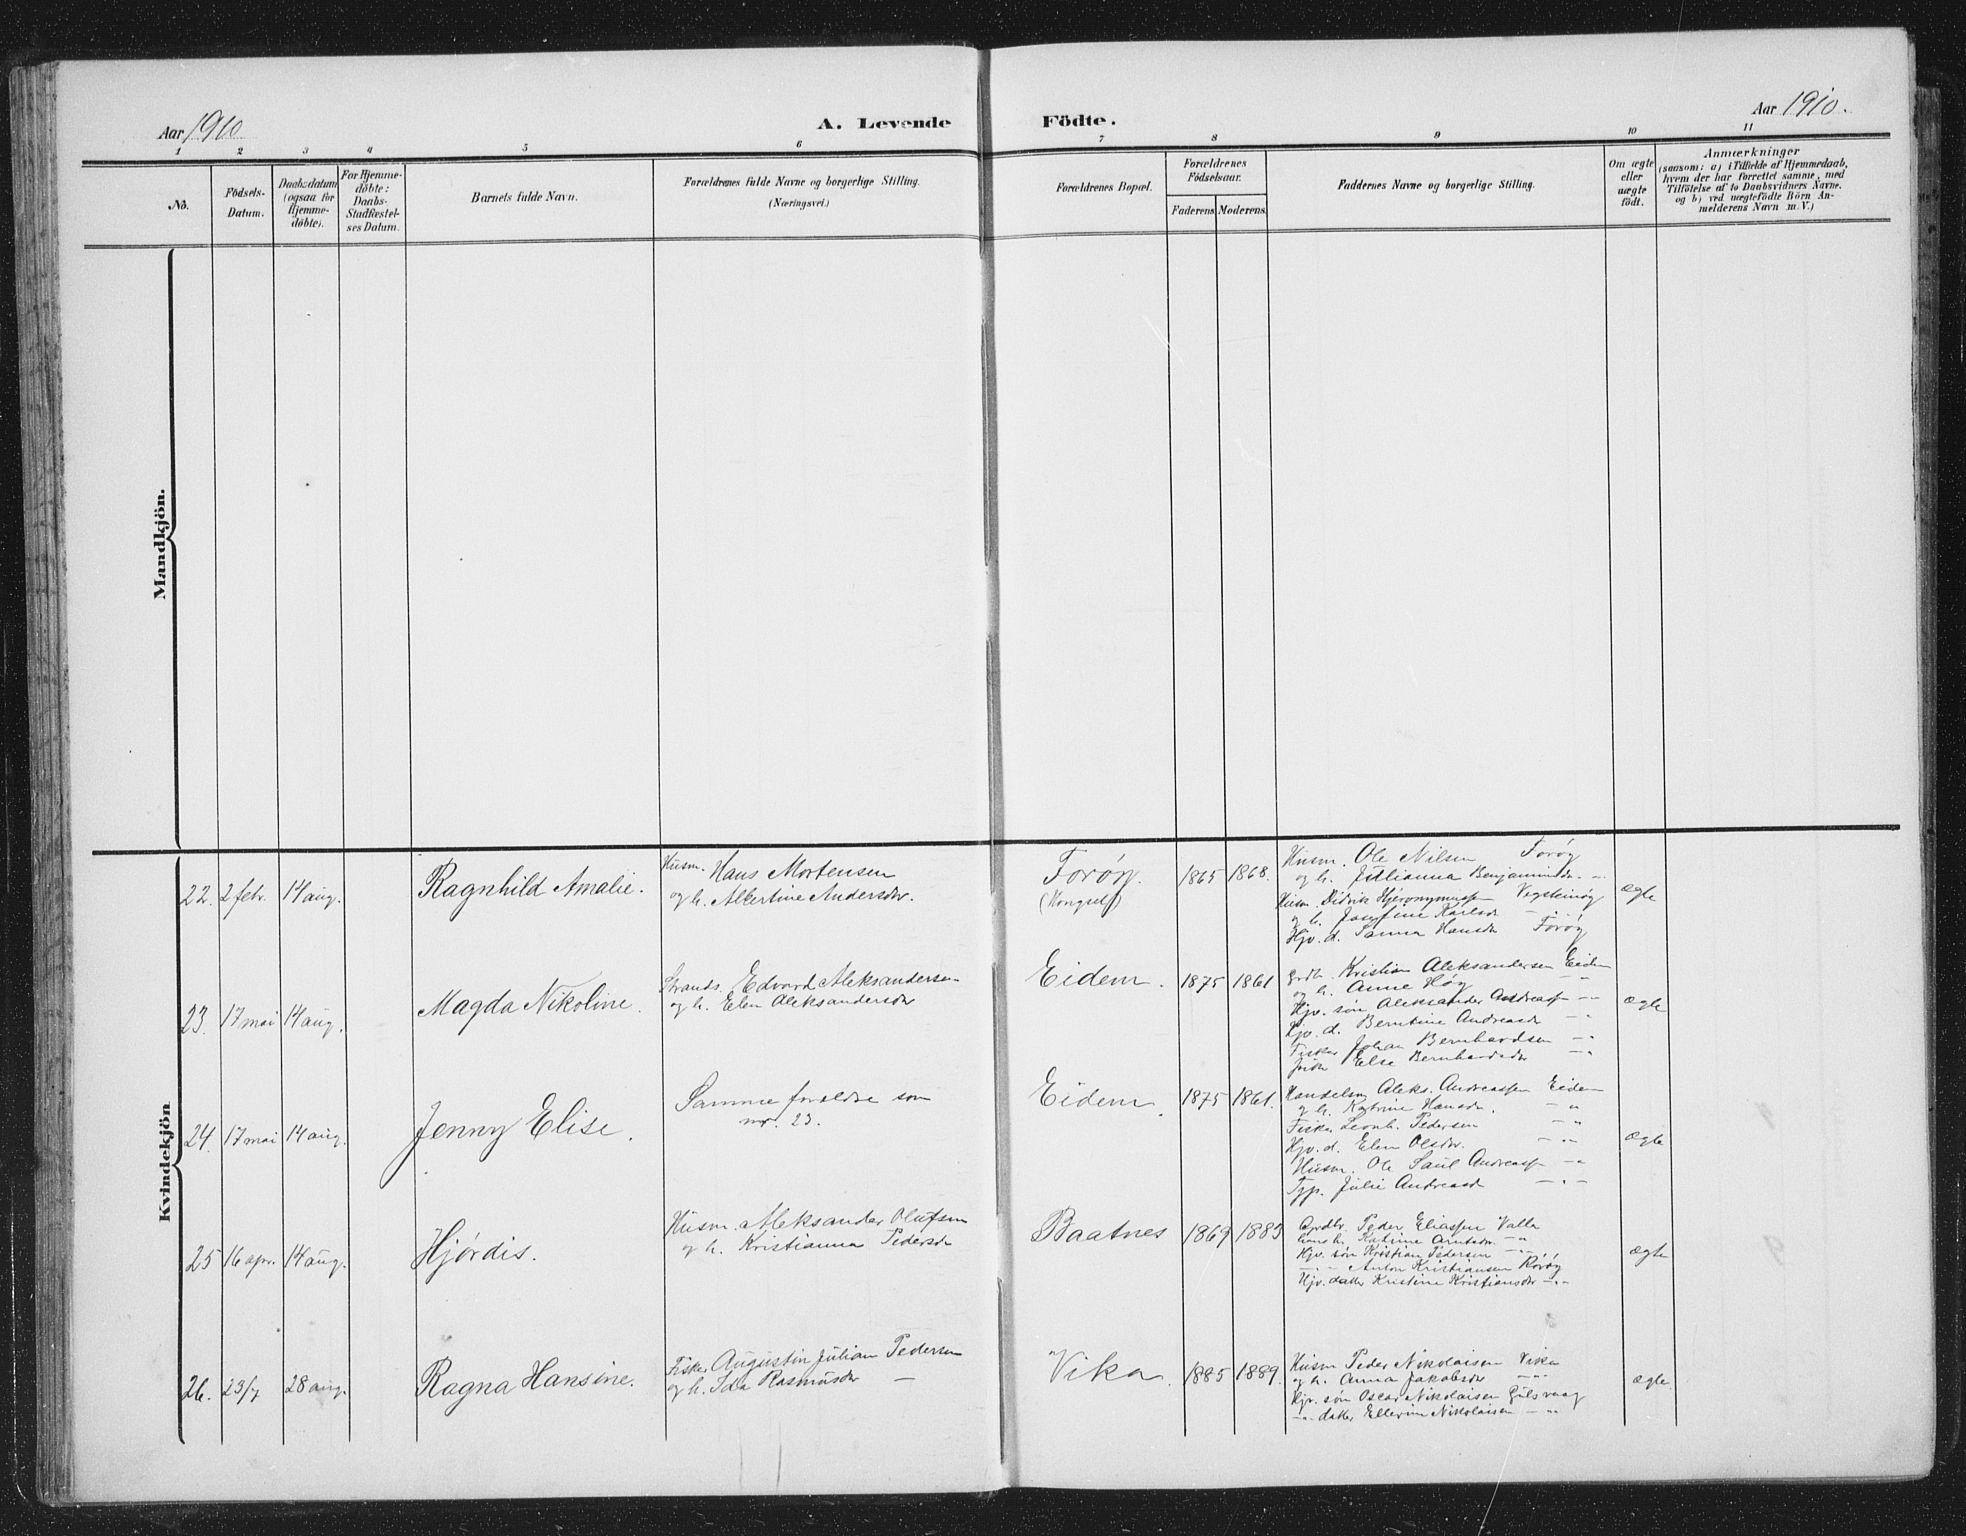 Aar 1910
A. Levende Födte.
Aar 1910.
1 2 3 4 5 6 7 8 9 10 11
No.
Födsels-Datum.
Daabsdatum (ogsaa for Hjemme-döbte).
For Hjemme-döbte: Daabs-Stadfestel-ses Datum.
Barnets fulde Navn.
Forældrenes fulde Navne og borgerlige Stilling.
(Næringsvei.)
Forældrenes Bopæl.
Forældrenes Födselsaar.
Faderens Moderens.
Faddernes Navne og borgerlige Stilling.
Om ægte eller uægte födt.
Anmærkninger
(saasom: a) i Tilfælde af Hjemmedaab,
hvem der har forrettet samme, med
Tilföielse af to Daabsvidners Navne.
og b) ved uægtefödte Börn An-
melderens Navn m. V.)
Mandkjön.
Kvindekjön
22. 2 febr. 14 aug. Ragnhild Amalie.
Husm. Hans Mortensen
og h. Albertine Andersdr.
Forøy.
(Kongself)
1865 1868.
Husm. Ole Nilsen Forøy
og h. Jullianna Benjaminsdr. -"-
Husm. Didrik Hjeronymussen Vegsteinøy
og h. Josefine Karlsdr -"-
Hjv. d. Sanna Hansdr Forøy
ægte
23. 17 mai 14 aug. Magda Nikoline.
Strands. Edvard Aleksandersen
og h. Elen Aleksandersdr
Eidem. 1875 1861
Grdbr. Kristian Aleksandersen Eidem
og h. Anne Høg -"-
Hjv. søn Aleksander Andreass. -"-
Hjv. d. Berntine Andreasdr -"-
Fisker Johan Bernhardsen -"-
Else Bernhardsdr -"-
ægte
24. 17 mai 14 aug. Jenny Elise.
Samme foreldre som
nr. 23.
Eidem. 1875 1861.
Handelsm. Aleks. Andreassen Eidem
og h. Katrine Hansdr. -"-
Fisker Leonh. Pedersen -"-
Hjv. d. Elen Olsdr. -"-
Husm. Ole Saul Andreass. -"-
Tjp. Julie Andreasd -"-
ægte
25 16 apr. 14 aug. Hjørdis.
Husm. Aleksander Olufsen
og h. Kristianna Pedersdr
Baatnes 1869 1883
Grdbr. Peder Eliassen Valla
hans h. Katrine Arntsdr. -"-
Hjv. søn Kristian Pedersen -"-
-"- Anton Kristiansen Rørøy
Hjv. datter Kristine Kristiansdr -"-
ægte
26. 23/7 28 aug. Ragna Hansine.
Fisker Augustin Julian Pedersen
og h. Ida Rasmusdr —
Vika. 1885 1889.
Husm Peder Nikolaisen Vika
og h. Anna Jakobsdr -"-
Hjv. søn Oscar Nikolaisen Gulsvaag
-"- datter Ellerine Nikolaisen -"-
ægte